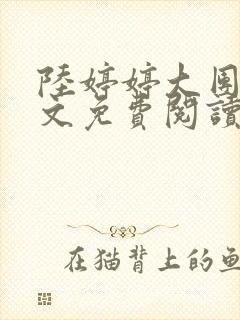 陸婷婷大周
文免費閱讀
在猫背上的鱼